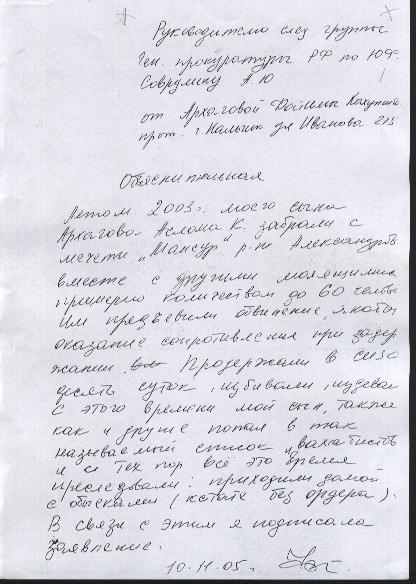 Руководителю след группы
Ген. прокуратуры РФ по ЮФ
Соврулину А Ю
от Архаговой Фатимы
прож. г. Нальчик ул Иванова
Объяснительная
Летом 2003 г. моего сына
Архагова Аслана К. забрали с
мечети „Мансур“ р-не Александров
вместе с другими молящимися
примерно количеством до 60 человек
Им предъявили обвинение, якобы
оказание сопротивления при задер
жании. Продержали в сизо
десять суток, избивали, издевал
С этого времени мой сын, также
как и другие попал в так
называемый список „ваххабистов
и с тех пор всё это время
преследовали: приходили домой
с обысками (кстати без ордера).
В связи с этим я подписала
заявление.
10.11.05г.